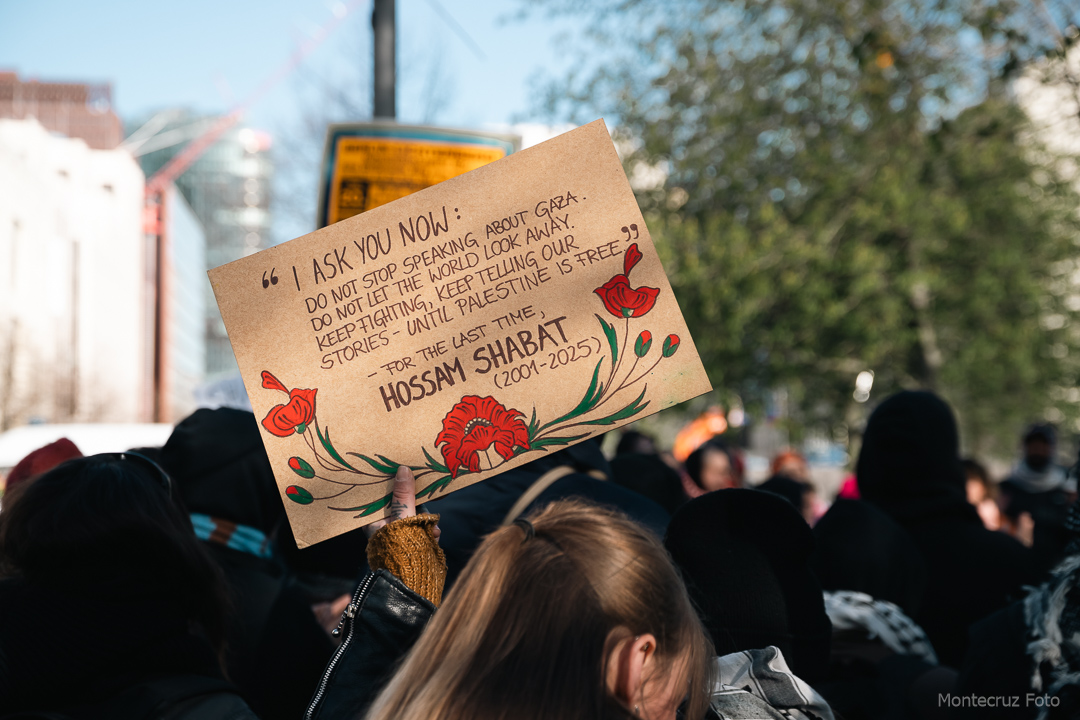 “ I ASK YOU NOW:
DO NOT STOP SPEAKING ABOUT GAZA.
DO NOT LET THE WORLD LOOK AWAY.
KEEP FIGHTING, KEEP TELLING OUR
STORIES - UNTIL PALESTINE IS FREE.”
- FOR THE LAST TIME,
HOSSAM SHABAT
(2001-2025)
Montecruz Foto